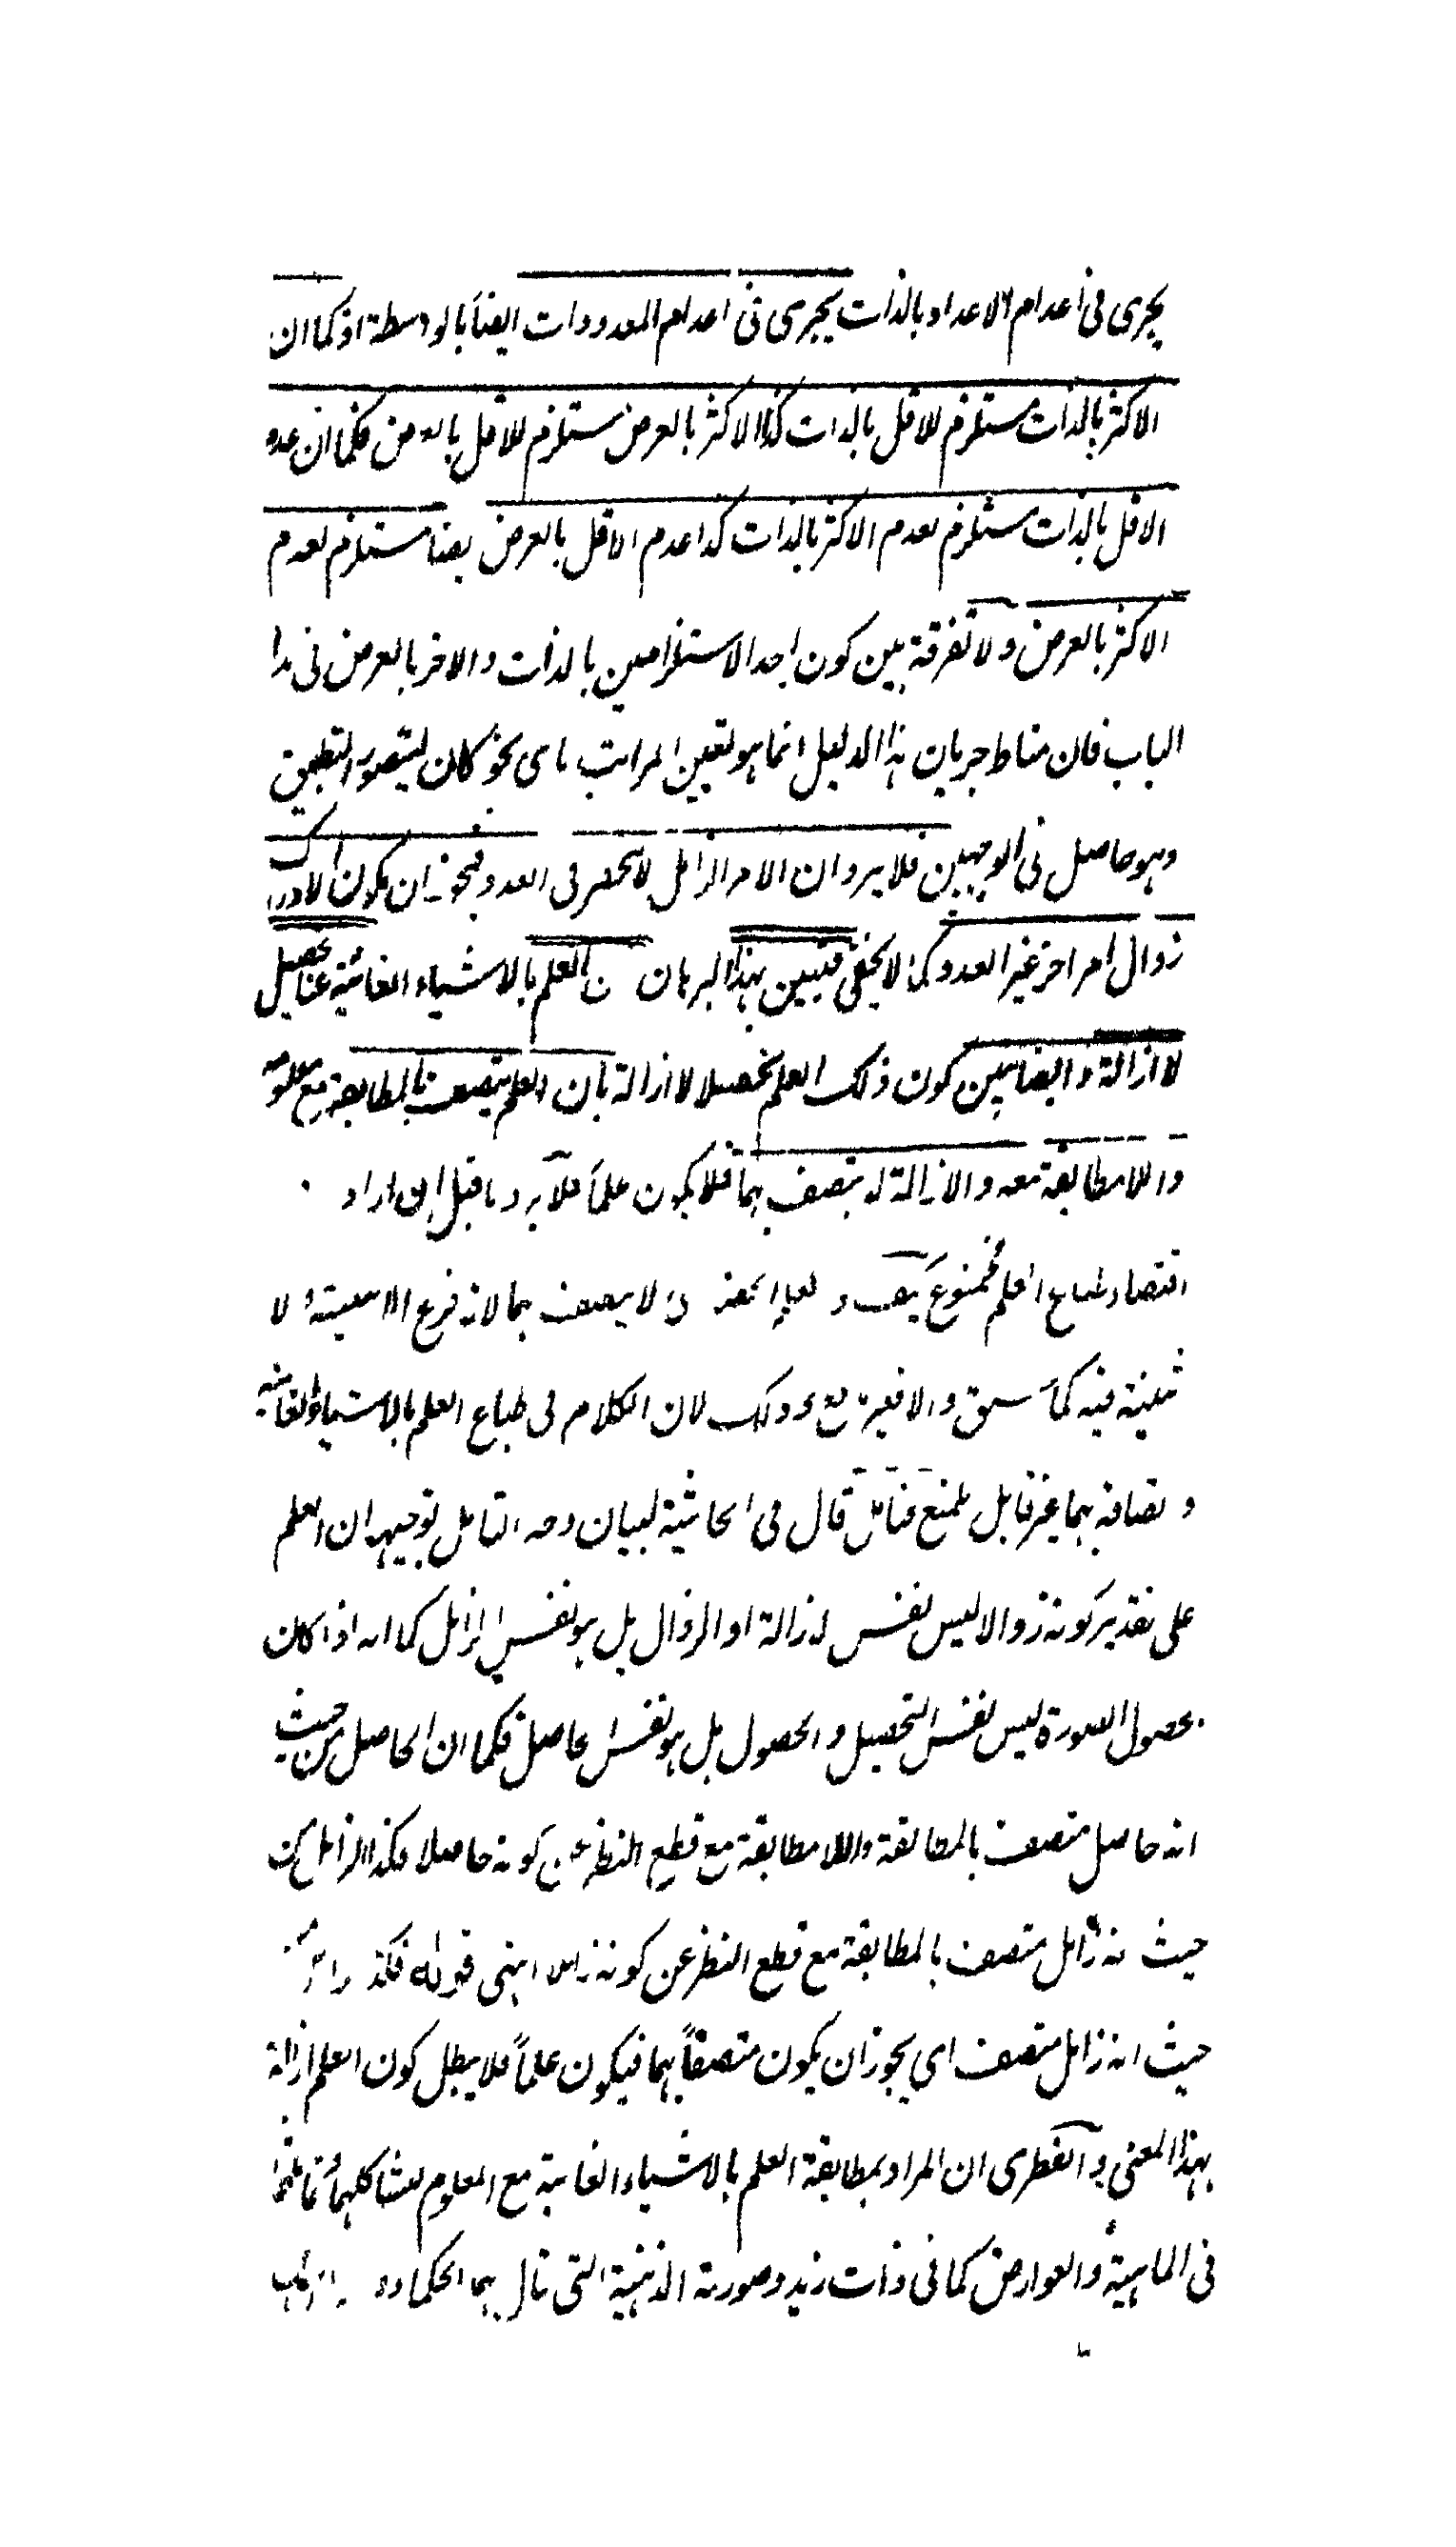 يجري في اعدام الاعداد بالذات يجري في اعدام المعدودات ايضاً بالواسطة اذ كما ان
الاكثر بالذات مستلزم للاقل بالذات كذا الاكثر بالعرض مستلزم للاقل بالعرض فكما ان عدم
الاقل بالذات مستلزم لعدم الاكثر بالذات كذا عدم الاقل بالعرض يضاً مستلزم لعدم
الاكثر بالعرض ولا تفرقة بين كون احد الاستلزامين بالذات والاخر بالعرض في هذا
الباب فان مناط جريان هذا الدليل انما هو تعين المراتب باي نحو كان ليتصور التطبيق
وهو حاصل في الوجهين فلا يرد ان الامر الزائل لا ينحصر في العدد فيجوز ان يكون الادراك
زوال امر اخر غير العدد كما لا يخفى فتبين بهذا البرهان ن العلم بالاشياء الغائبة عنا تحصيل
لا ازالة و ايضا يبين كون ذلك العلم تحصيلا لا ازالة بان العلم يتصف بالمطابقة مع معلومه
واللا مطابقة معه والازالة لا يتصف بهما فلا يكون علماً فلا يرد ما قيل ان اراد
اقتضاء طباع العلم فممنوع لا يتصف بهما لانه فرع الاثنينية و لا
ثنينية فيه كما سبق والاخير وذلك لان الكلام في طباع العلم بالاشياء الغائبة
و تصافه بهما غير قابل للمنع فتامل قال في الحاشية لبيان وجه التامل توجيهه ان العلم
على تقدير كونه زوالا ليس نفس الازالة او الزوال بل هو نفس الزائل كما انه اذا كان
بحصول الصورة ليس نفس التحصيل و الحصول بل هو نفس الحاصل فكما ان الحاصل من حيث
انه حاصل متصف بالمطابقة واللا مطابقة مع قطع النظر عن كونه حاصلا فكذا الزائل من
حيث نه زائل متصف بالمطابقة مع قطع النظر عن كونه زائلا انتهى قوله فكذا من
حيث انه زائل متصف اي يجوز ان يكون متصفاً بهما فيكون علماً فلا يبطل كون العلم ازالة
بهذا المعنى و الفطرى ان المراد بمطابقة العلم بالاشياء الغائبة مع المعلوم تشاكلهما تماثلهما
في الماهية و العوارض كما في ذات زيد وصورته الذهنية التي قال بها الحكماء